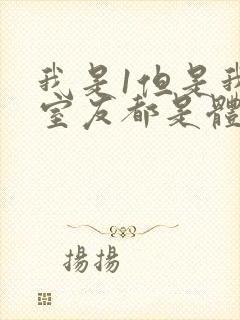 我是1但是我
室友都是體
揚揚